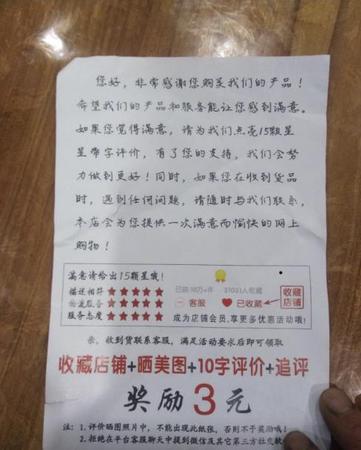 您好，非常感谢您购买我们的产品！
希望我们的产品和服务能让您感到满意。
如果您觉得满意，请为我们点亮15颗星星
带字评价，有了您的支持，我们会努
力做到更好！同时，如果您在收到货品
时，遇到任何问题，请随时与我们联系，
本店会为您提供一次满意而愉快的网上
购物！
满意请给出15颗星哦！
描述相符 ★★★★★
物流服务 ★★★★★
服务态度 ★★★★★
已拼10万+件 31031人收藏
客服 已收藏 收藏店铺
成为店铺会员,享更多优惠活动哦!
亲，收到货联系客服，满足活动要求后即可领取
收藏店铺+晒美图+10字评价+追评
奖励3元
注：1. 评价晒图照片中，不能出现此纸张，否则不予奖励哦！
2. 拒绝在平台客服聊天中提到微信及其它第三方社交软